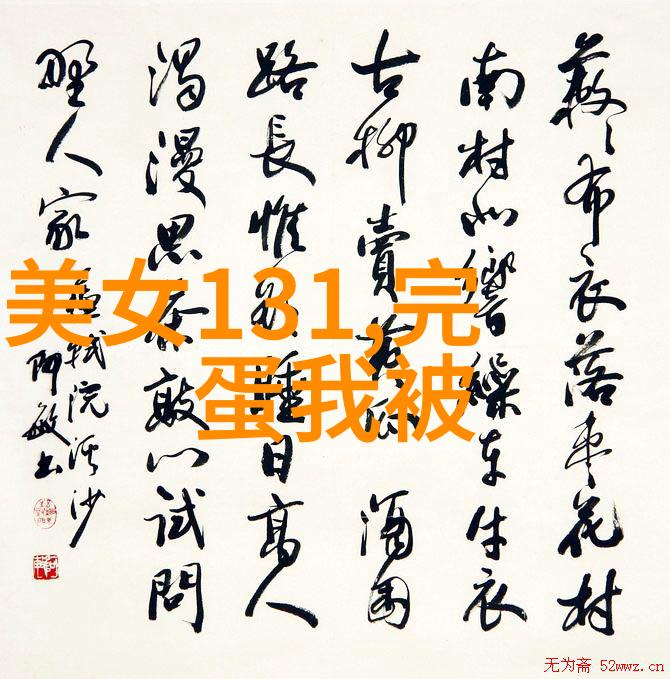 蔌〻布衣落枣花村
南村北響繰车牛衣
古柳賣黄瓜 酒困
路長惟欲睡日高人
渴漫思茶敲门试問
野人家
軾浣溪沙
阿敏书
美女131,完
蛋我被
无为斋 52wwz.cn